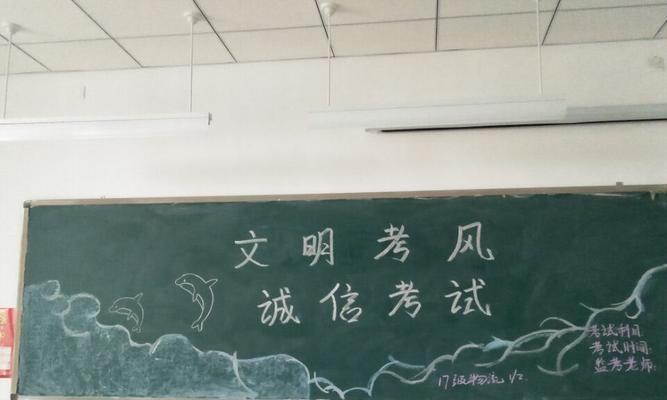 文明考风
誠信考试
考试科目:
考试时间:
监考老师:
17级物流 1/2